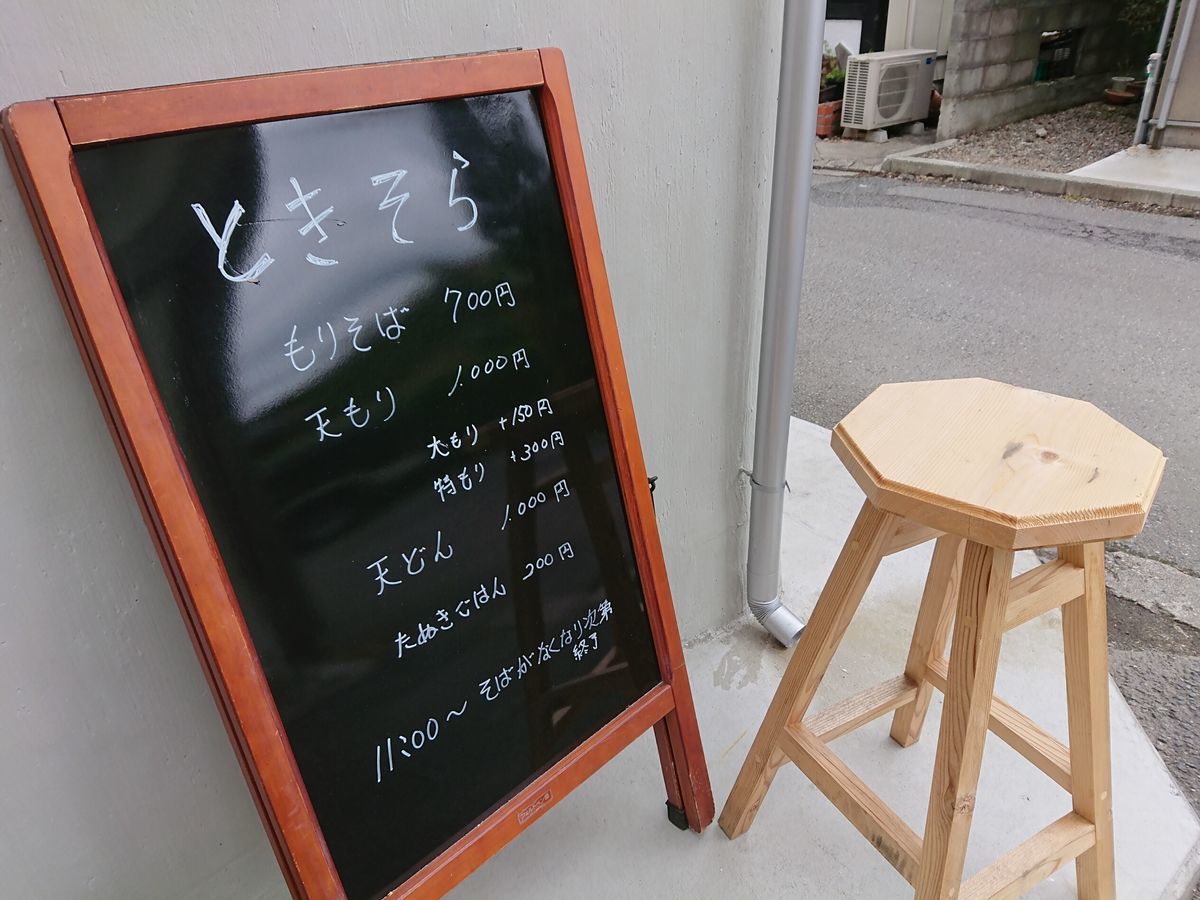 ときそら
もりそば 700円
天もり 1.000円
大もり +150円
特もり +300円
天どん 1.000円
たぬきごはん 200円
11:00～ そばがなくなり次第
終了